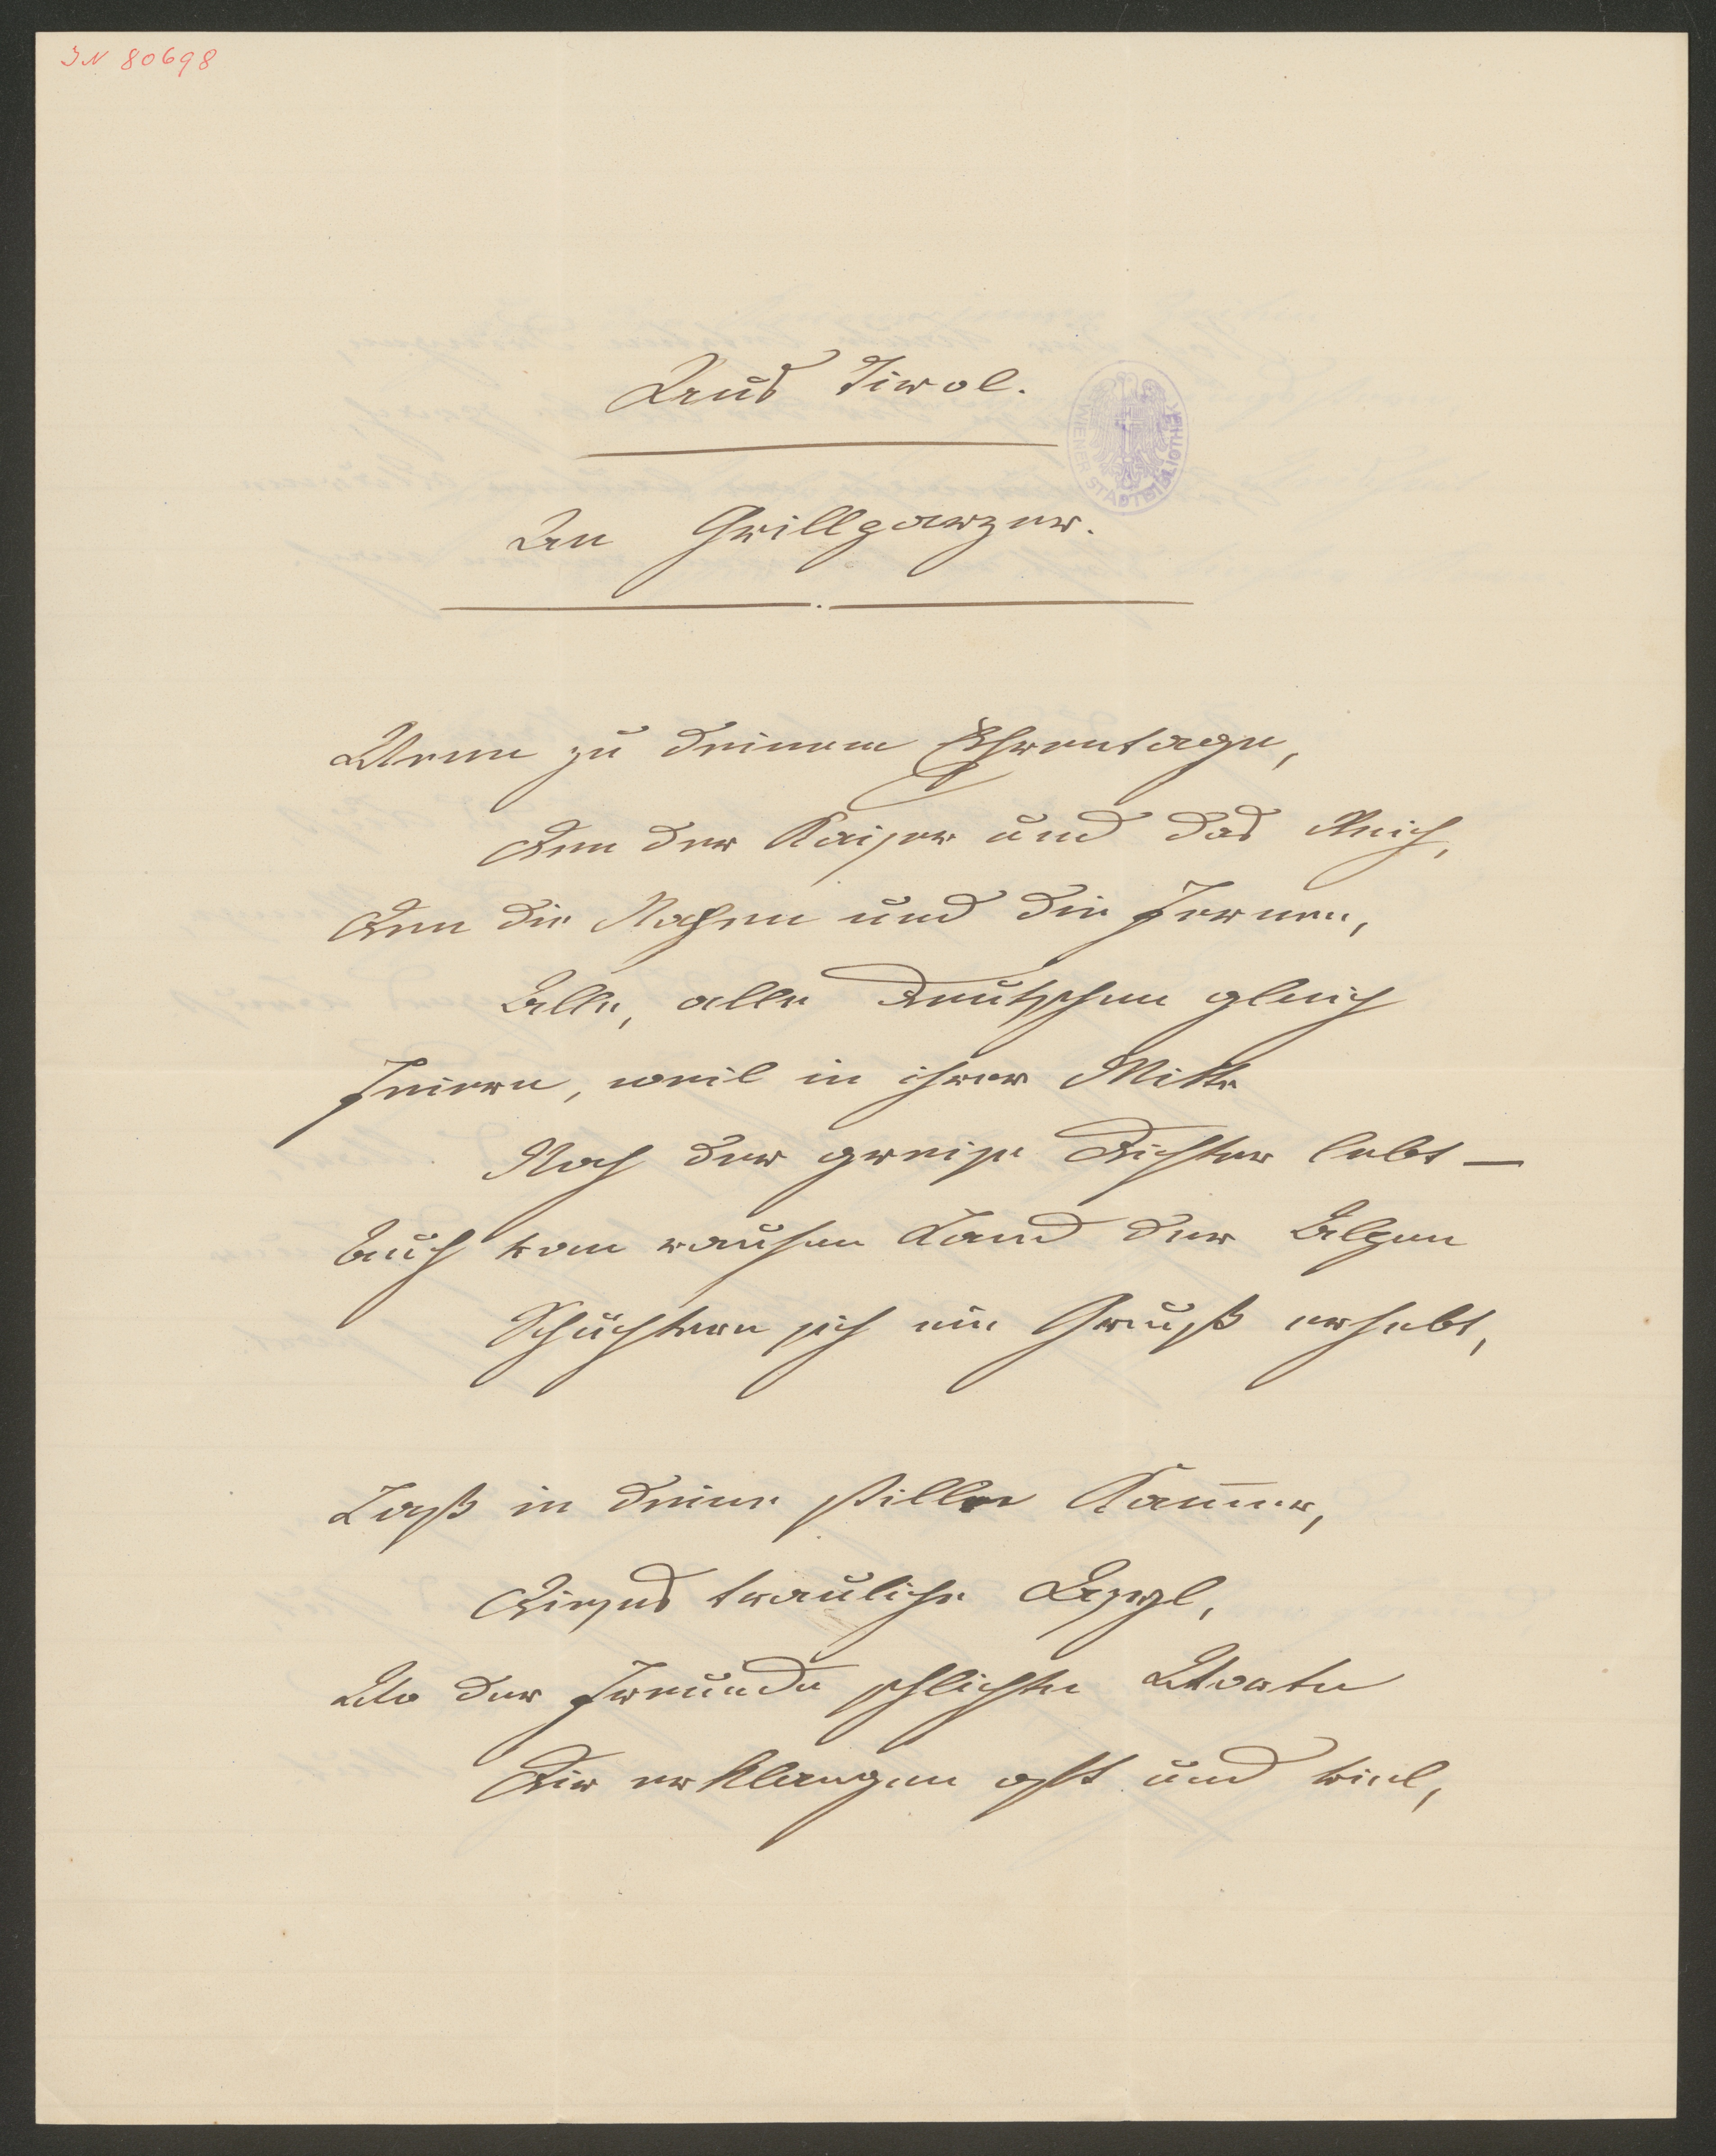 IN 80698
Aus Tirol.
WIENER STADTBIBLIOTHEK
An Grillparzer.
Wenn zu deinem Ehrentage,
Den der Kaiser und das Reich,
Den die Nahen und die Fernen,
Alle, alle Deutschen gleich
Feiern, weil in ihrer Mitte
Noch der greise Dichter lebt —
Auch vom rauhen Land der Alpen
Schüchtern sich ein Gruß erhebt,
Laß in deine stille Kam̅er,
Dieses trauliche Asyl,
Wo der Freunde schlichte Worte
Dir erklangen oft und viel,